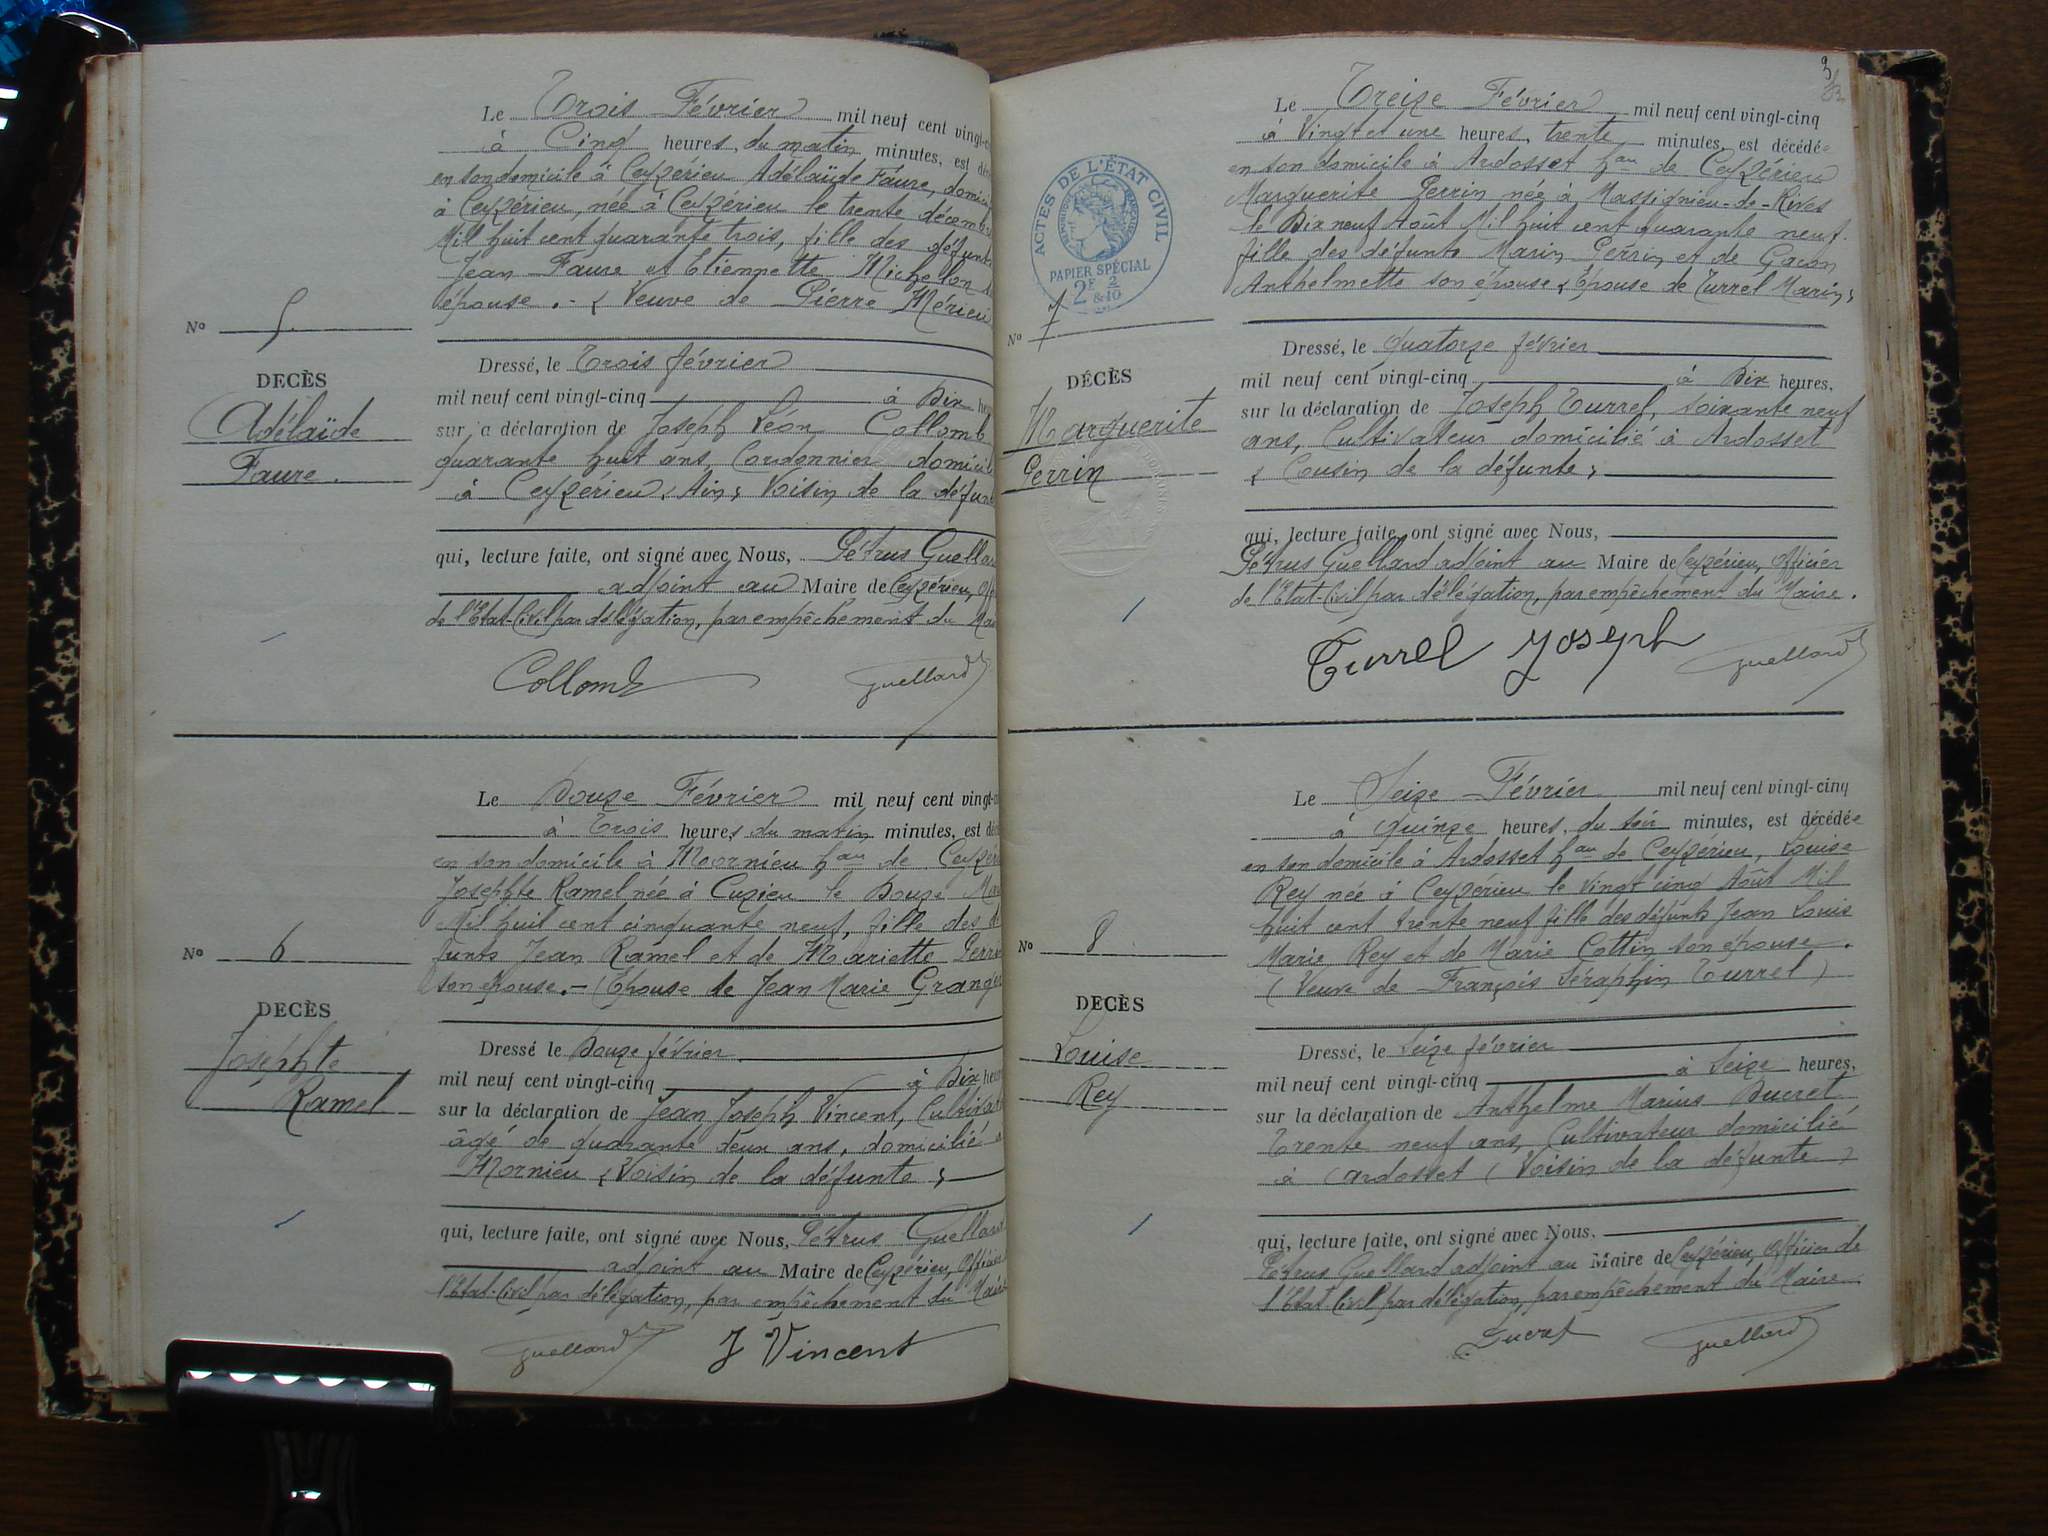 Le Trois Février mil neuf cent vingt-c
à Cinq heures, du matin minutes, est déc
en son domicile à Ceyzérieu Adélaïde Faure, domici
à Ceyzérieu, née à Ceyzérieu le trente décemb
Mil huit cent quarante trois, fille des défunts
Jean Faure et Etiennette Michellon
épouse. - ( Veuve de Pierre Mérieu
No 5
DECÈS
Adélaïde
Faure.
Dressé, le Trois février
mil neuf cent vingt-cinq à Dix heu
sur la déclaration de Joseph Léon Collomb
quarante huit ans, Cordonnier domicil
à Ceyzérieu, Ain, Voisin de la défun
qui, lecture faite, ont signé avec Nous, Pétrus Guellar
adjoint au Maire de Ceyzérieu, Off
de l'Etat-Civil par délégation, par empêchement du Mai
Collomb Guellard
Le Douze Février mil neuf cent vingt-c
à Trois heures du matin minutes, est déc
en son domicile à Mornieu hau de Ceyzéri
Josephte Ramel née à Cuzieu le Douze Ma
Mil huit cent cinquante neuf, fille des dé
funts Jean Ramel et de Mariette Perri
son épouse. - ( Epouse de Jean Marie Grange
No 6
DECÈS
Josephte
Ramel
Dressé le Douze février
mil neuf cent vingt-cinq à Dix heur
sur la déclaration de Jean Joseph Vincent, Cultivat
âgé de quarante deux ans, domicilié à
Mornieu ( Voisin de la défunte )
qui, lecture faite, ont signé avec Nous, Pétrus Guellar
adjoint au Maire de Ceyzérieu, Officier
l'Etat-Civil par délégation, par empêchement du Maire
Guellard J Vincent
3
Le Treize Février mil neuf cent vingt-cinq
à Vingt et une heures, trente minutes, est décédée
en son domicile à Ardosset hau de Ceyzérieu
Marguerite Perrin née à Massignieu-de-Rives
le Dix neuf Août Mil huit cent quarante neuf.
fille des défunts Marin Perrin et de Gacon
Anthelmette son épouse ( Epouse de Turrel Marin )
ACTES DE L'ÉTAT CIVIL
PAPIER SPÉCIAL
2F 2
&10
No 7
DÉCÈS
Marguerite
Perrin
Dressé, le quatorze février
mil neuf cent vingt-cinq à Dix heures,
sur la déclaration de Joseph Turrel, soixante neuf
ans, Cultivateur domicilié à Ardosset
( Cousin de la défunte )
qui, lecture faite, ont signé avec Nous,
Pétrus Guellard adjoint au Maire de Ceyzérieu, Officier
de l'Etat-Civil par délégation, par empêchement du Maire.
Turrel Joseph Guellard
Le Seize Février mil neuf cent vingt-cinq
à quinze heures, du soir minutes, est décédée
en son domicile à Ardosset hau de Ceyzérieu, Louise
Rey née à Ceyzérieu le vingt cinq Août Mil
huit cent trente neuf fille des défunts Jean Louis
Marie Rey et de Marie Cottin son épouse.
( Veuve de François Séraphin Turrel )
No 8
DECÈS
Louise
Rey
Dressé, le Seize février
mil neuf cent vingt-cinq à Seize heures,
sur la déclaration de Anthelme Marius Ducret
Trente neuf ans, Cultivateur domicilié
à Ardosset ( Voisin de la défunte )
qui, lecture faite, ont signé avec Nous,
Pétrus Guellard adjoint au Maire de Ceyzérieu, Officier de
l'Etat Civil par délégation, par empêchement du Maire
Ducret Guellard